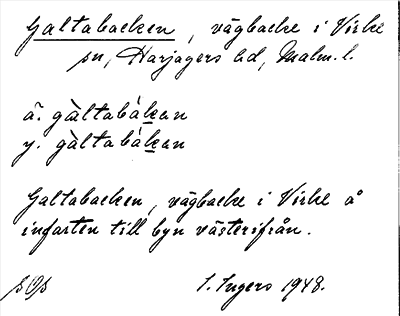 Galtabacken, vägbacke i Virke
sn, Harjagers hd, Malm. l.
ä. gàltabákan
y. gàltabákan
Galtabacken, vägbacke i Virke å
infarten till byn västerifrån.
I. Ingers 1948.